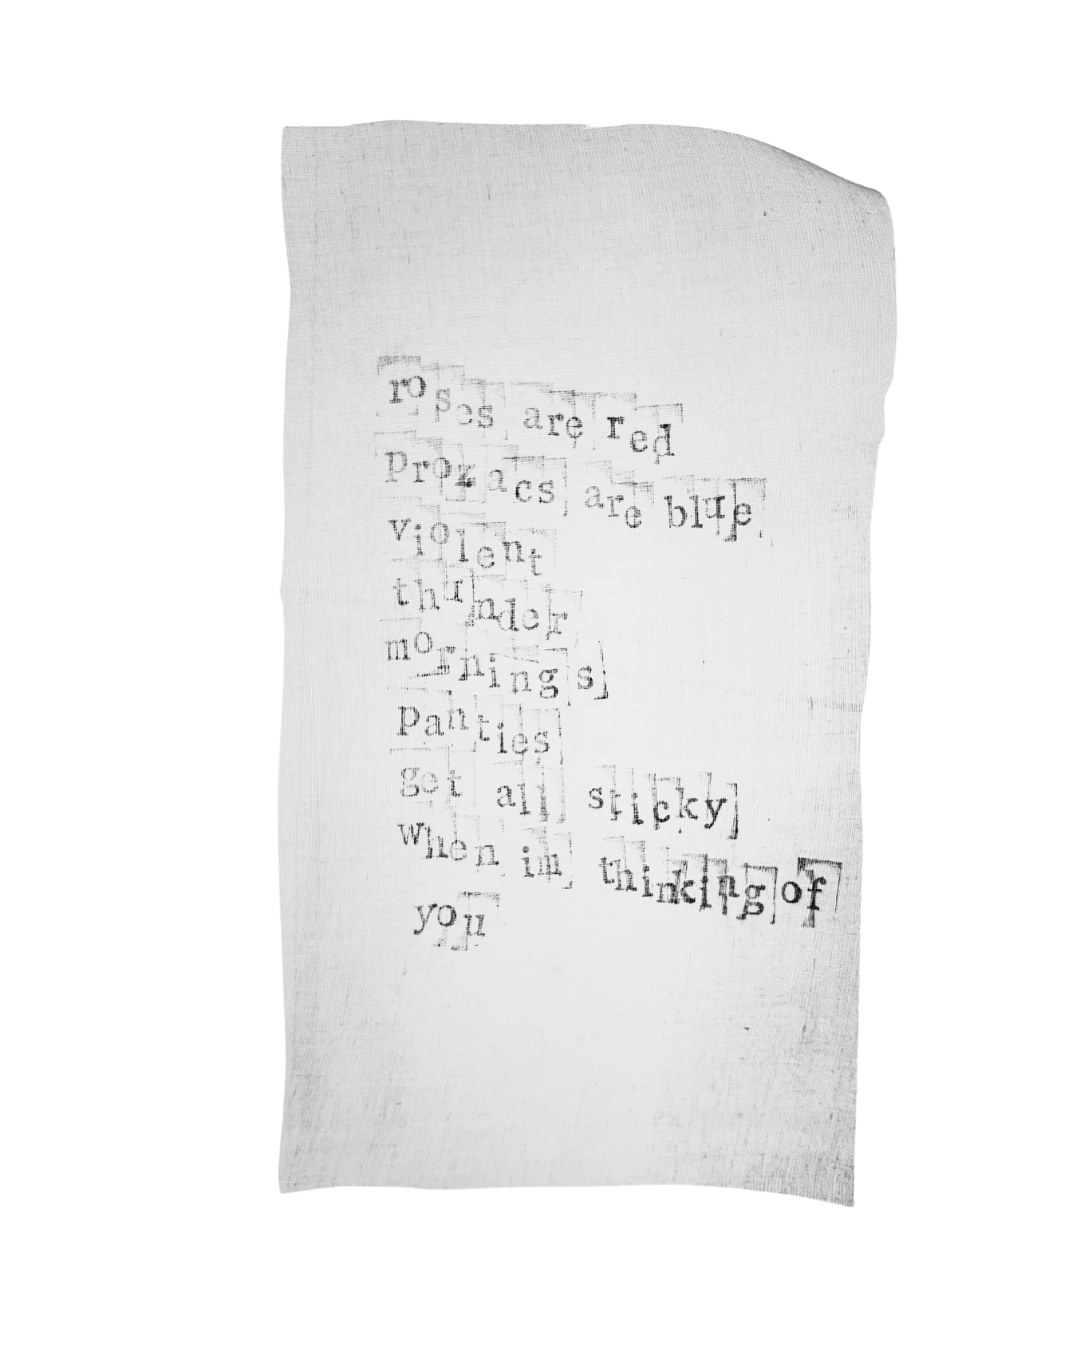 roses are red
prozacs are blue
violent
thunder
mornings
panties
get all sticky
when im thinking of
you